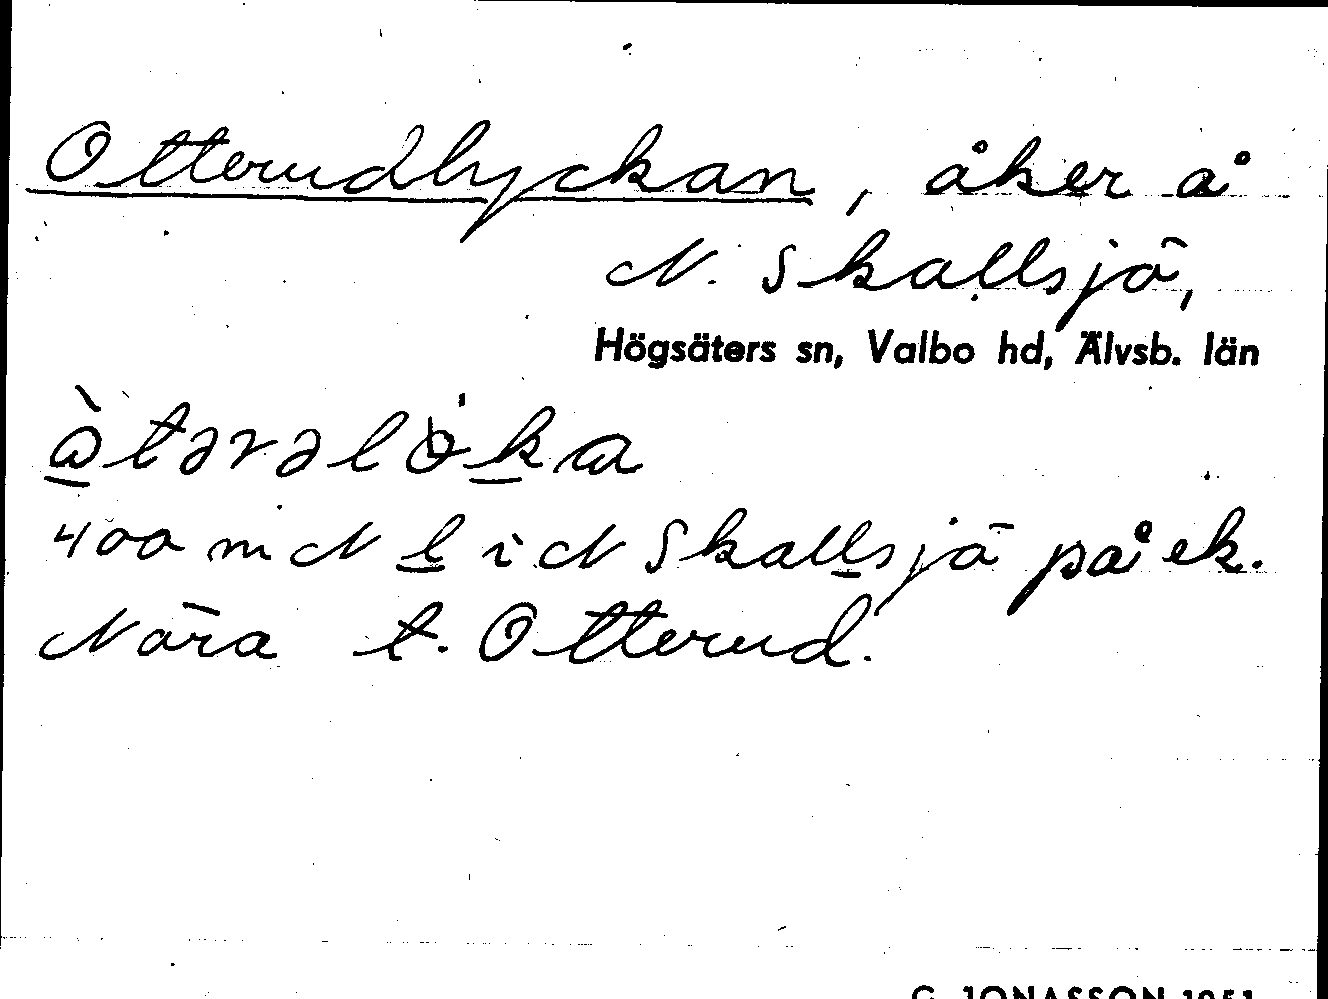 Otterudlyckan, åker å
N. Skallsjö,
Högsäters sn, Valbo hd, Älvsb. län
400 m N l i N Skallsjö på ek.
Nära t. Otterud.
G. JONASSON 1951